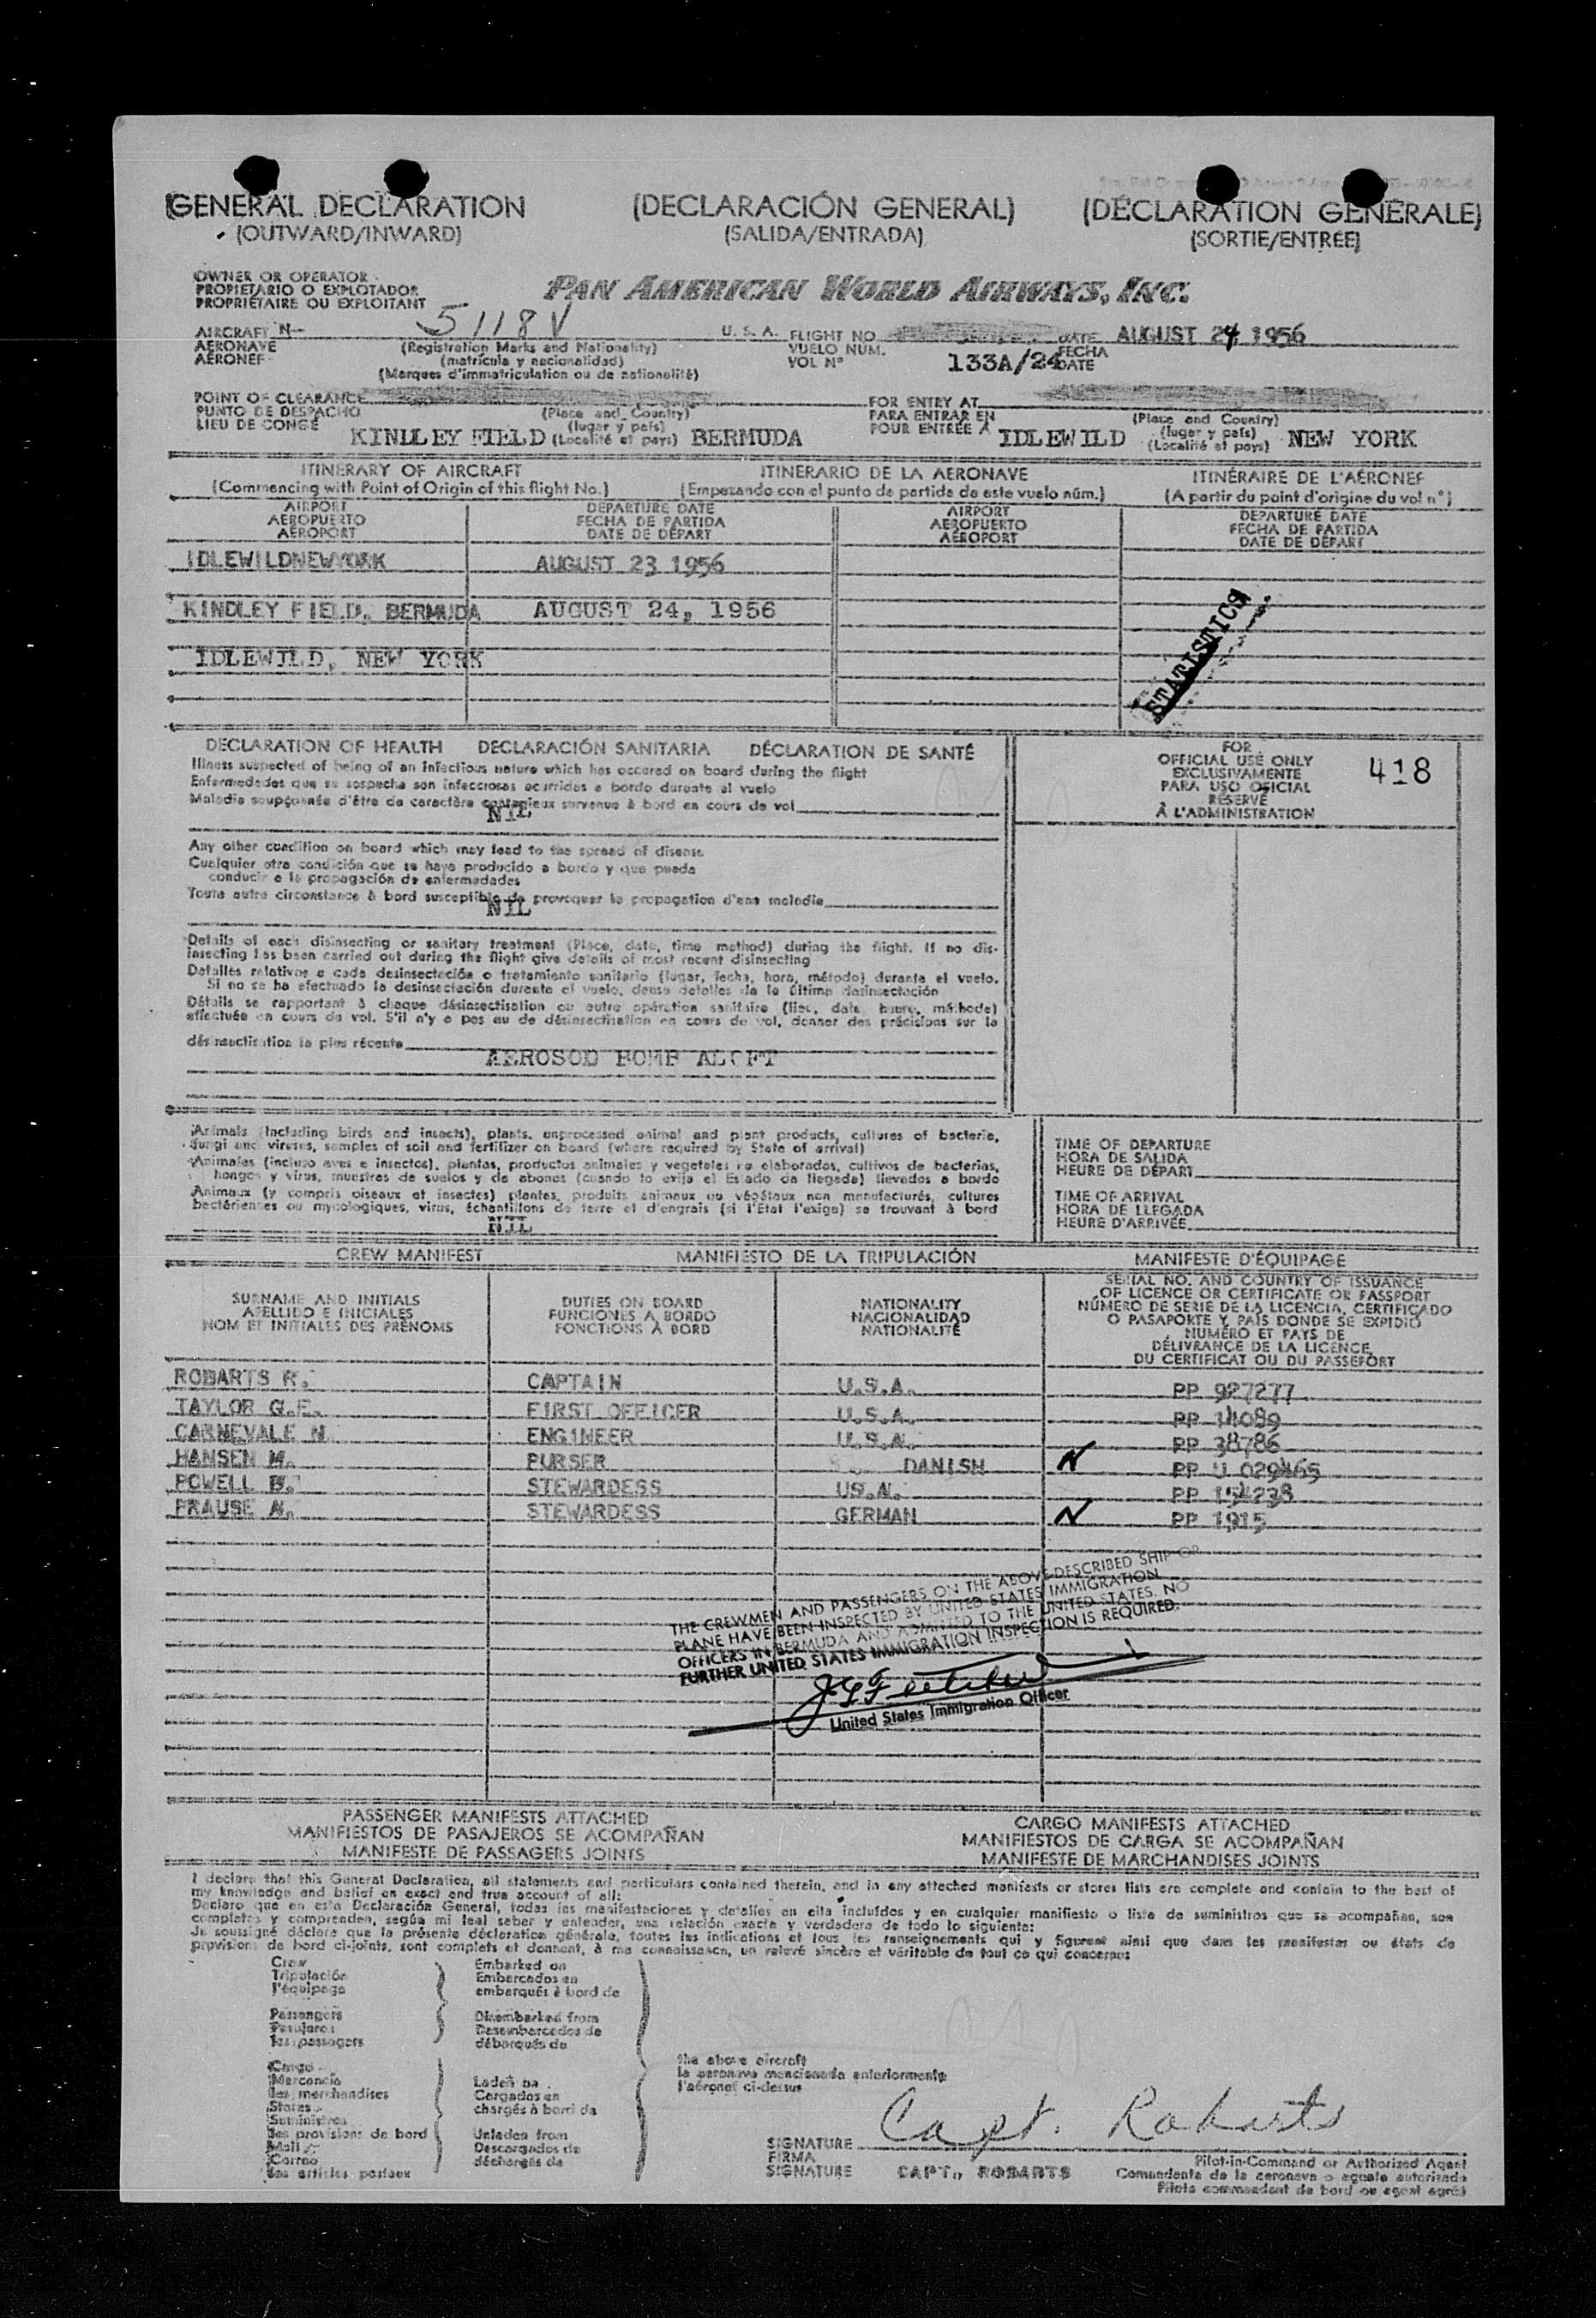 GENERAL DECLARATION
(OUTWARD/INWARD)
(DECLARACIÓN GENERAL)
(SALIDA/ENTRADA)
(DÉCLARATION GÉNÉRALE)
(SORTIE/ENTRÉE)
OWNER OR OPERATOR
PROPIETARIO O EXPLOTADOR
PROPRIÉTAIRE OU EXPLOITANT
PAN AMERICAN WORLD AIRWAYS, INC.
AIRCRAFT N- 5118V U. S. A. FLIGHT NO DATE AUGUST 24 1956
AERONAVE (Registration Marks and Nationality) VUELO NUM. 133A/24 FECHA
AÉRONEF (matrícula y nacionalidad) VOL N° DATE
(Marques d'immatriculation ou de nationalité)
POINT OF CLEARANCE FOR ENTRY AT
PUNTO DE DESPACHO (Place and Country) PARA ENTRAR EN (Place and Country)
LIEU DE CONGÉ KINDLEY FIELD (lugar y país) (Localité et pays) BERMUDA POUR ENTRÉE À IDLEWILD (lugar y país) (Localité et pays) NEW YORK
ITINERARY OF AIRCRAFT ITINERARIO DE LA AERONAVE ITINÉRAIRE DE L'AÉRONEF
(Commencing with Point of Origin of this flight No.) (Empezando con el punto de partida de este vuelo núm.) (A partir du point d'origine du vol n°)
AIRPORT DEPARTURE DATE AIRPORT DEPARTURE DATE
AEROPUERTO FECHA DE PARTIDA AEROPUERTO FECHA DE PARTIDA
AÉROPORT DATE DE DÉPART AÉROPORT DATE DE DÉPART
IDLEWILDNEWYORK AUGUST 23 1956
KINDLEY FIELD, BERMUDA AUGUST 24, 1956
IDLEWILD, NEW YORK
STATISTICS
DECLARATION OF HEALTH DECLARACIÓN SANITARIA DÉCLARATION DE SANTÉ
Illness suspected of being of an infectious nature which has occured on board during the flight
Enfermedades que se sospecha son infecciosas ocurridas a bordo durante el vuelo
Maladie soupçonnée d'être de caractère contagieux survenue à bord en cours de vol
NIL
FOR
OFFICIAL USE ONLY
EXCLUSIVAMENTE
PARA USO OFICIAL
RÉSERVÉ
À L'ADMINISTRATION
418
Any other condition on board which may lead to the spread of disease
Cualquier otra condición que se haya producido a bordo y que pueda
conducir a la propagación de enfermedades
Toute autre circonstance à bord susceptible de provoquer la propagation d'une maladie
NIL
Details of each disinsecting or sanitary treatment (Place, date, time method) during the flight. If no dis-
insecting has been carried out during the flight give details of most recent disinsecting
Detalles relativos a cada desinsectación o tratamiento sanitario (lugar, fecha, hora, método) durante el vuelo.
Si no se ha efectuado la desinsectación durante el vuelo, dense detalles de la última desinsectación
Détails se rapportant à chaque désinsectisation ou autre opération sanitaire (lieu, date, heure, méthode)
effectuée en cours de vol. S'il n'y a pas eu de désinsectisation en cours de vol, donner des précisions sur la
désinsectisation la plus récente
AEROSOD BOMB ALOFT
Animals (Including birds and insects), plants, unprocessed animal and plant products, cultures of bacteria,
fungi and viruses, samples of soil and fertilizer on board (where required by State of arrival)
Animales (incluso aves e insectos), plantas, productos animales y vegetales no elaborados, cultivos de bacterias,
hongos y virus, muestras de suelos y de abonos (cuando lo exija el Estado de llegada) llevados a bordo
Animaux (y compris oiseaux et insectes) plantes, produits animaux ou végétaux non manufacturés, cultures
bactériennes ou mycologiques, virus, échantillons de terre et d'engrais (si l'État l'exige) se trouvant à bord
NIL
TIME OF DEPARTURE
HORA DE SALIDA
HEURE DE DÉPART
TIME OF ARRIVAL
HORA DE LLEGADA
HEURE D'ARRIVÉE
CREW MANIFEST MANIFIESTO DE LA TRIPULACIÓN MANIFESTE D'ÉQUIPAGE
SURNAME AND INITIALS
APELLIDO E INICIALES
NOM ET INITIALES DES PRÉNOMS
DUTIES ON BOARD
FUNCIONES A BORDO
FONCTIONS À BORD
NATIONALITY
NACIONALIDAD
NATIONALITÉ
SERIAL NO. AND COUNTRY OF ISSUANCE
OF LICENCE OR CERTIFICATE OR PASSPORT
NÚMERO DE SERIE DE LA LICENCIA, CERTIFICADO
O PASAPORTE Y PAÍS DONDE SE EXPIDIÓ
NUMÉRO ET PAYS DE
DÉLIVRANCE DE LA LICENCE,
DU CERTIFICAT OU DU PASSEPORT
ROBARTS R. CAPTAIN U.S.A. PP 927277
TAYLOR G.E. FIRST OFFICER U.S.A. PP 14089
CARNEVALE N ENGINEER U.S.A. PP 38786
HANSEN M. PURSER DANISH N PP U 029465
POWELL B. STEWARDESS US.A. PP 154238
PRAUSE A. STEWARDESS GERMAN N PP 1915
THE CREWMEN AND PASSENGERS ON THE ABOVE-DESCRIBED SHIP OR
PLANE HAVE BEEN INSPECTED BY UNITED STATES IMMIGRATION
OFFICERS IN BERMUDA AND ADMITTED TO THE UNITED STATES. NO
FURTHER UNITED STATES IMMIGRATION INSPECTION IS REQUIRED.
United States Immigration Officer
PASSENGER MANIFESTS ATTACHED
MANIFIESTOS DE PASAJEROS SE ACOMPAÑAN
MANIFESTE DE PASSAGERS JOINTS
CARGO MANIFESTS ATTACHED
MANIFIESTOS DE CARGA SE ACOMPAÑAN
MANIFESTE DE MARCHANDISES JOINTS
I declare that this General Declaration, all statements and particulars contained therein, and in any attached manifests or stores lists are complete and contain to the best of
my knowledge and belief an exact and true account of all:
Declaro que en esta Declaración General, todas las manifestaciones y detalles en ella incluídos y en cualquier manifiesto o lista de suministros que se acompañan, son
completos y comprenden, según mi leal saber y entender, una relación exacta y verdadera de todo lo siguiente:
Je soussigné déclare que la présente déclaration générale, toutes les indications et tous les renseignements qui y figurent ainsi que dans les manifestes ou états de
provisions de bord ci-joints, sont complets et donnent, à ma connaissance, un relevé sincère et véritable de tout ce qui concerne:
Crew
Tripulación
l'équipage
Embarked on
Embarcados en
embarqués à bord de
Passengers
Pasajeros
les passagers
Disembarked from
Desembarcados de
débarqués de
Cargo
Mercancía
les merchandises
Stores
Suministros
les provisions de bord
Mail
Correo
les articles postaux
Laden on
Cargados en
chargés à bord de
Unladen from
Descargados de
déchargés de
the above aircraft
la aeronave mencionada anteriormente
l'aéronef ci-dessus
Capt. Robarts
SIGNATURE
FIRMA
SIGNATURE CAPT., ROBARTS
Pilot-in-Command or Authorized Agent
Comandante de la aeronave o agente autorizado
Pilote commandant de bord ou agent agréé